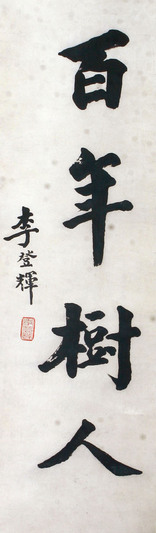 百年樹人
李登輝